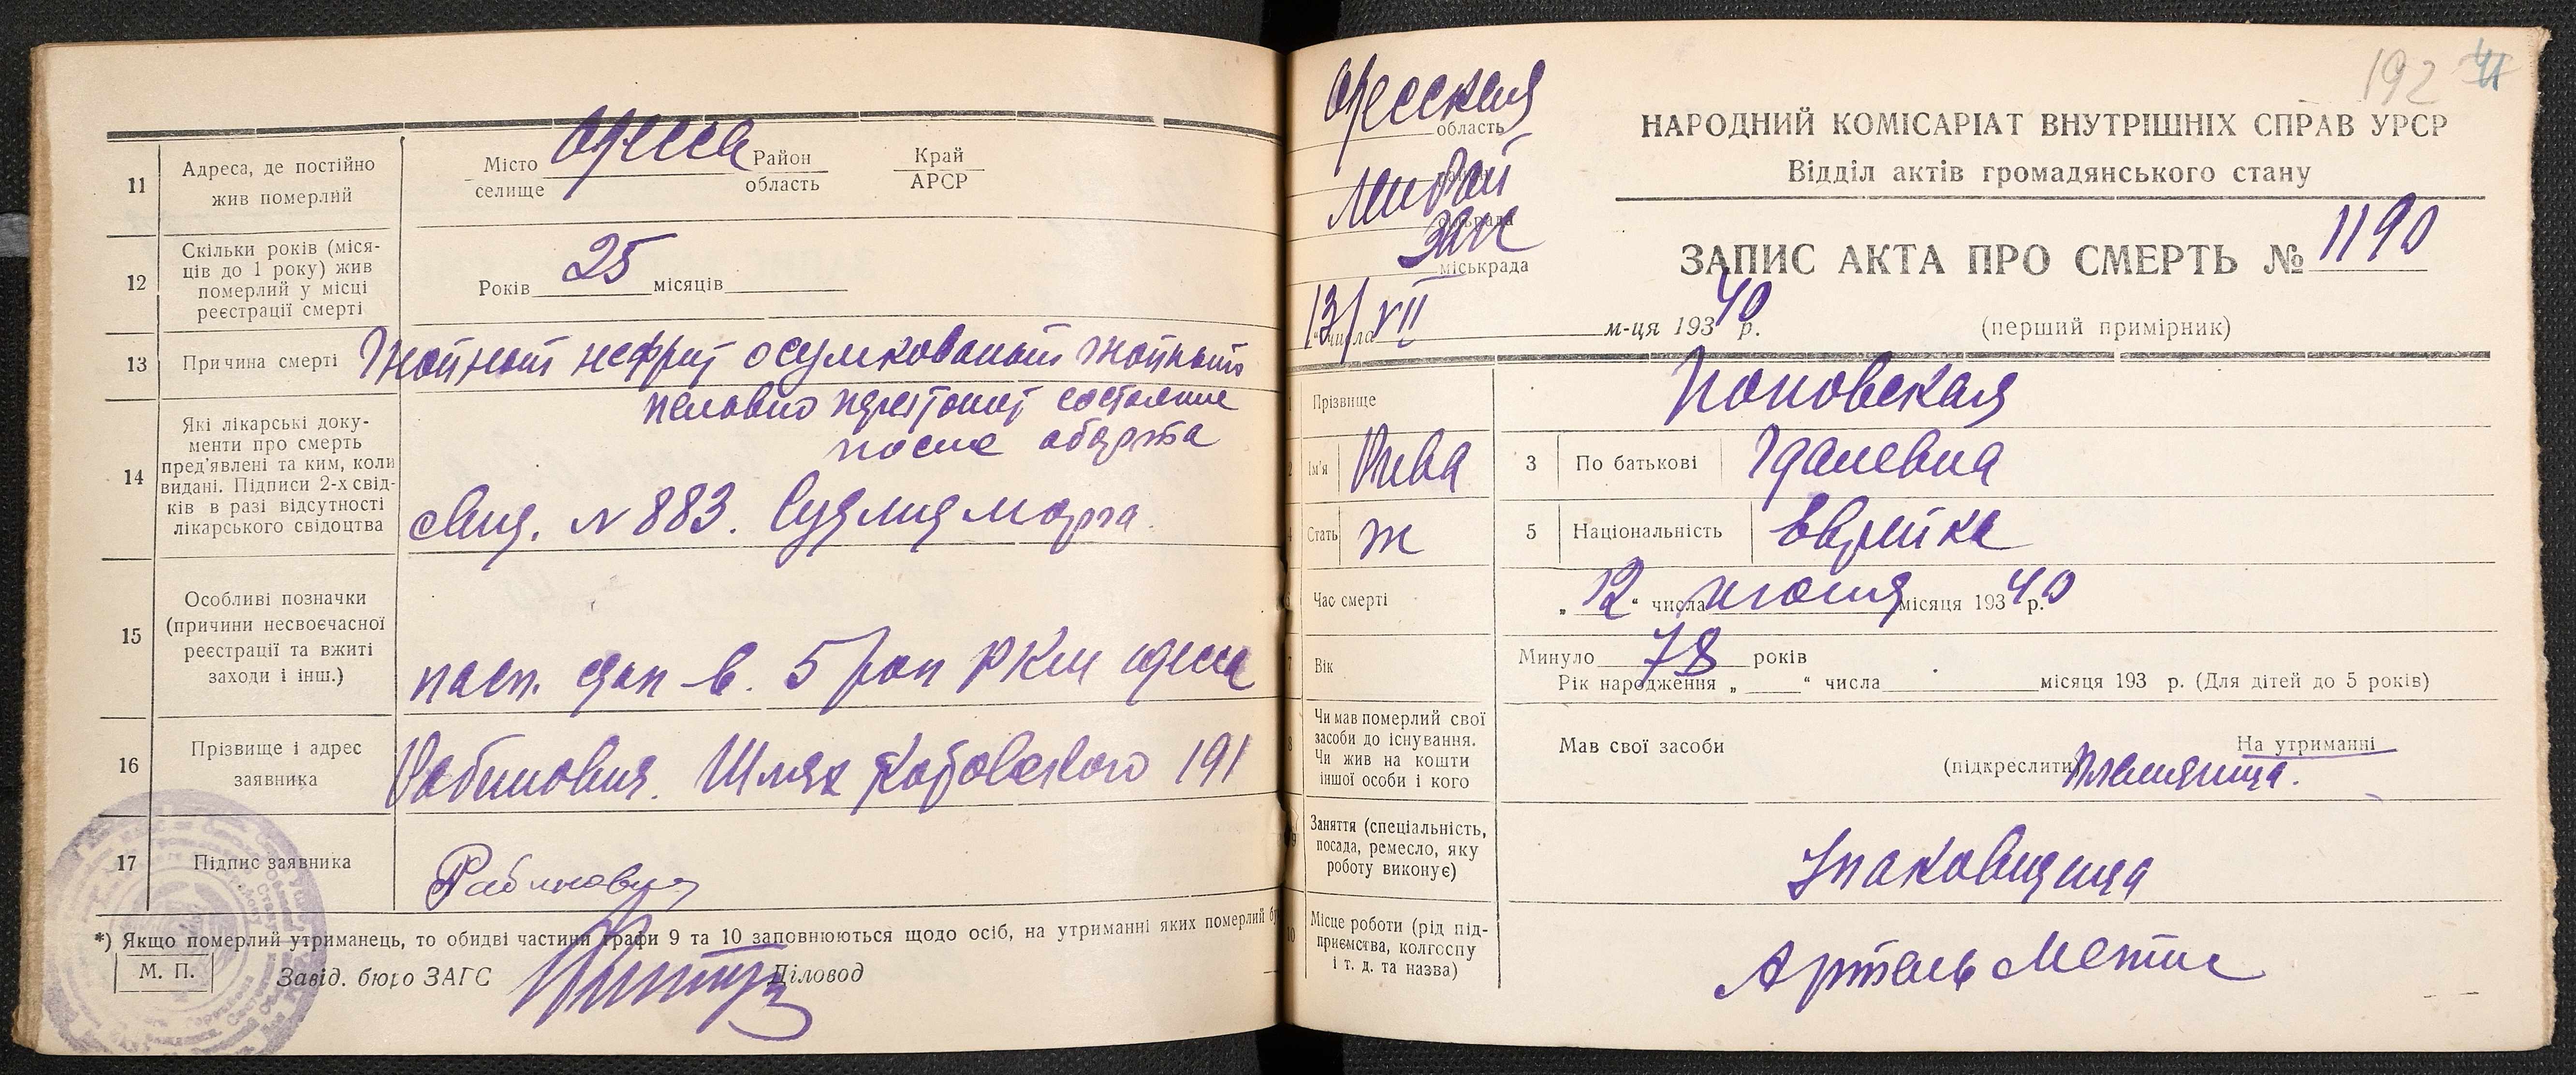 11
Адреса, де постійно
жив померлий
Місто
селище
Одесса
Район
область
Край
АРСР
12
Скільки років (міся-
ців до 1 року) жив
померлий у місці
реєстрації смерті
Років 25 місяців
13
Причина смерті
Гнойный нефрит осумкованный гнойный
пельвио перетонит состояние
после аборта
14
Які лікарські доку-
менти про смерть
пред'явлені та ким, коли
видані. Підписи 2-х свід-
ків в разі відсутності
лікарського свідоцтва
свид. № 883. Суд мед морга.
15
Особливі позначки
(причини несвоєчасної
реєстрації та вжиті
заходи і інш.)
пасп. сдан в. 5 РКМ Одесса
16
Прізвище і адрес
заявника
Рабинович. Шлях Котовского 191
17
Підпис заявника
Рабинович
*) Якщо померлий утриманець, то обидві частини графи 9 та 10 заповнюються щодо осіб, на утриманні яких померлий
М. П.
Завід. бюро ЗАГС
Діловод
192
Одесская
область
міськрада
13/VII
числа м-ця 193 40 р.
НАРОДНИЙ КОМІСАРІАТ ВНУТРІШНІХ СПРАВ УРСР
Відділ актів громадянського стану
ЗАПИС АКТА ПРО СМЕРТЬ № 1190
(перший примірник)
Прізвище
Поповская
Ім'я
Рива
3
По батькові
Идалевна
Стать
ж
5
Національність
еврейка
Час смерті
„ 12 “ числа июля місяця 193 40 р.
Вік
Минуло 78 років
Рік народження „ “ числа місяця 193 р. (Для дітей до 5 років)
Чи мав померлий свої
засоби до існування.
Чи жив на кошти
іншої особи і кого
Мав свої засоби
На утриманні
(підкреслити)
племянница.
9
Заняття (спеціальність,
посада, ремесло, яку
роботу виконує)
Упаковщица
10
Місце роботи (рід під-
приємства, колгоспу
і т. д. та назва)
Артель